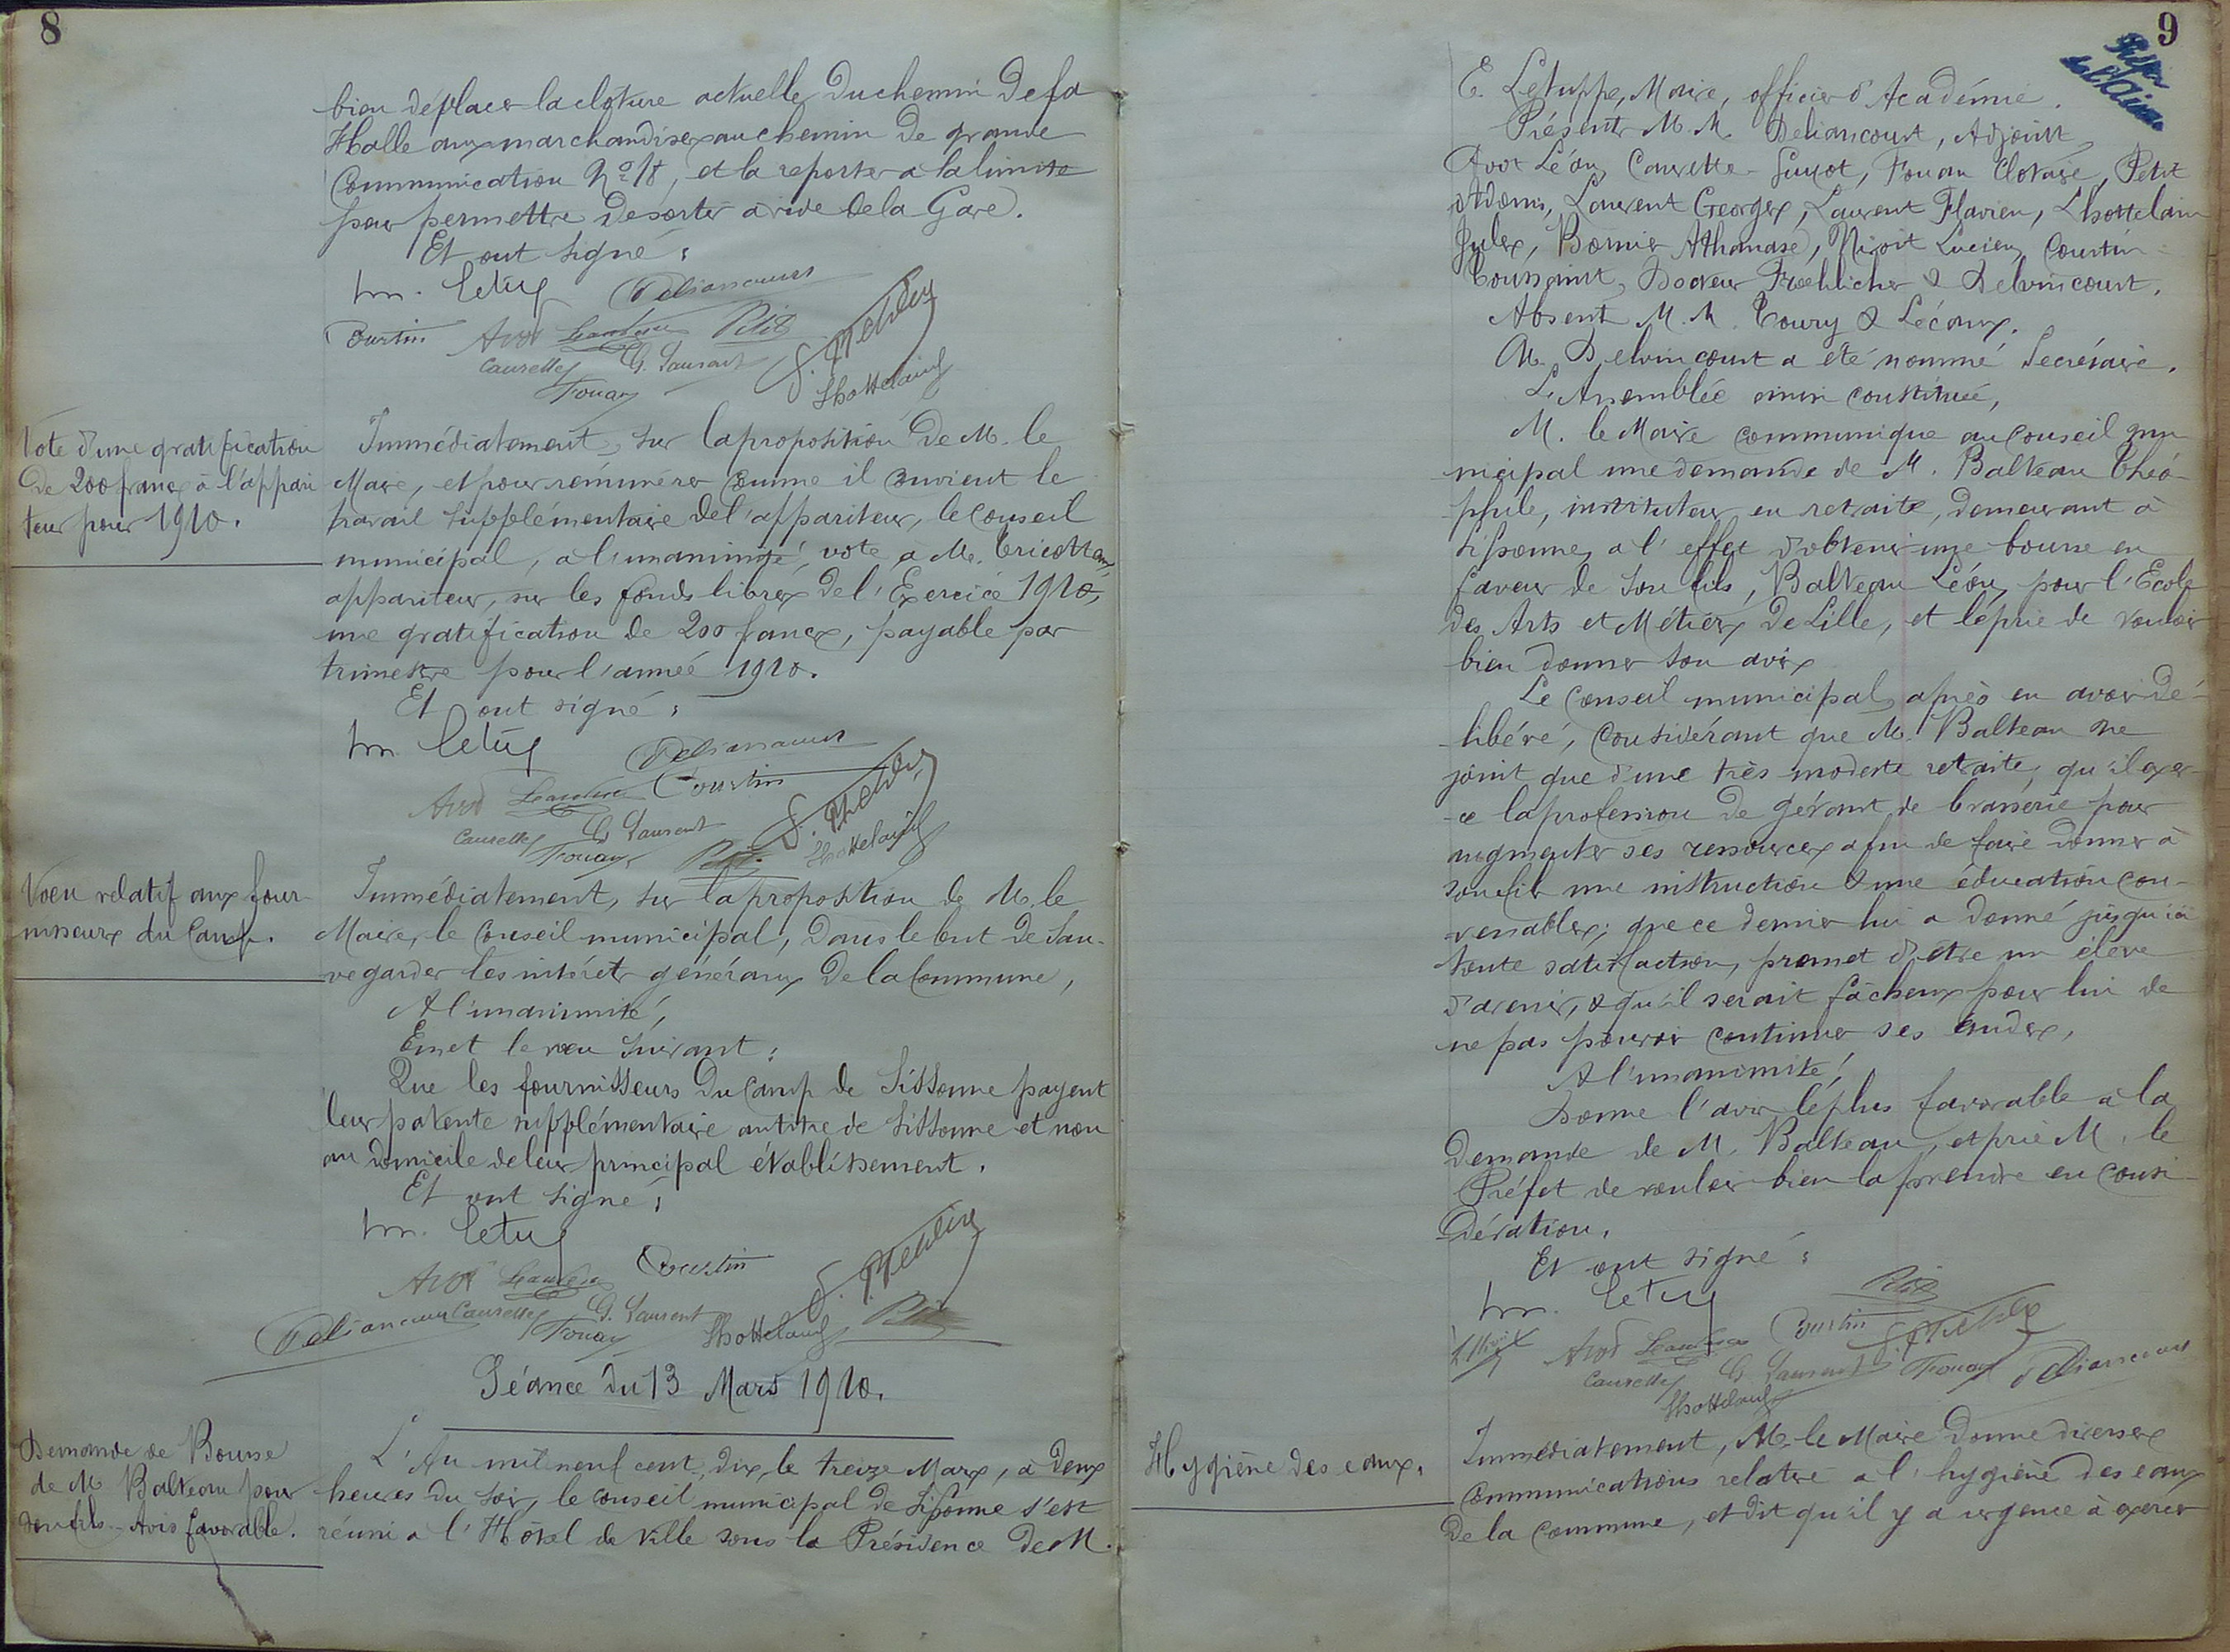 8
bien déplacer la cloture actuelle du chemin de la
Halle aux marchandises au chemin de grande
Communication No 18, et la reporter à la limite
pour permettre de sortir à rive de la Gare.
Et ont signé :
Deliancourt
Courtin Avot Petit
Caurette G. Laurent
Fouan Lhottelain
Vote d'une gratification
de 200 francs à l'appari
teur pour 1910.
Immédiatement, sur la proposition de M. le
Maire, et pour rémunérer comme il convient le
travail supplémentaire de l'appariteur, le Conseil
municipal, à l'unanimité, vote à M. Tricotteau,
appariteur, sur les fonds libres de l'Exercice 1910,
une gratification de 200 francs, payable par
trimestre pour l'année 1910.
Et ont signé :
Deliancourt
Avot Courtin
Caurette G. Laurent
Fouan Petit Lhottelain
Voeu relatif aux four-
nisseurs du Camp.
Immédiatement, sur la proposition de M. le
Maire, le Conseil municipal, dans le but de sau-
vegarder les intérêts généraux de la Commune,
A l'unanimité,
Emet le voeu suivant :
Que les fournisseurs du Camp de Sissonne payent
leur patente supplémentaire au titre de Sissonne et non
au domicile de leur principal établissement.
Et ont signé :
Avot Courtin
Deliancourt Caurette G. Laurent
Fouan Lhottelain Petit
Séance du 13 Mars 1910.
Demande de Bourse
de M Balteau pour
son fils - Avis favorable.
L'An mil neuf cent dix, le treize Mars, à deux
heures du soir, le Conseil municipal de Sissonne s'est
réuni à l'Hôtel de Ville sous la Présidence de M.
9
E. Letuppe, Maire, officier d'Académie.
Présents M. M. Deliancourt, Adjoint,
Avot Léon, Caurette-Guyot, Fouan Clotaire, Petit
Adonis, Laurent Georges, Laurent Flavien, Lhottelain
Jules, Bornier Athanase, Miroit Lucien, Courtin
Toussaint, Docteur Froehlicher & Delvincourt.
Absents M. M. Toury & Lécoux.
M. Delvincourt a été nommé Secrétaire.
L'Assemblée ainsi constituée,
M. le Maire communique au Conseil mu
nicipal une demande de M. Balteau Théo-
phile, instituteur en retraite, demeurant à
Sissonne, à l'effet d'obtenir une bourse en
faveur de son fils, Balteau Léon, pour l'Ecole
des Arts et Métiers de Lille, et le prie de vouloir
bien donner son avis
Le Conseil municipal, après en avoir dé-
libéré, Considérant que M. Balteau ne
jouit que d'une très modeste retraite, qu'il exer-
ce la profession de gérant de brasserie pour
augmenter ses ressources afin de faire donner à
son fils une instruction & une éducation con-
venables; que ce dernier lui a donné jusqu'ici
toute satisfaction, promet d'être un élève
d'avenir, & qu'il serait fâcheux pour lui de
ne pas pouvoir continuer ses études,
A l'unanimité,
Donne l'avis le plus favorable à la
demande de M. Balteau, et prie M. le
Préfet de vouloir bien la prendre en consi
dération.
Et ont signé :
Petit
Avot Courtin
Caurette G. Laurent Fouan Deliancourt
Lhottelain
Hygiène des eaux.
Immédiatement, M. le Maire donne diverses
communications relative à l'hygiène des eaux
de la Commune, et dit qu'il y a urgence à exercer